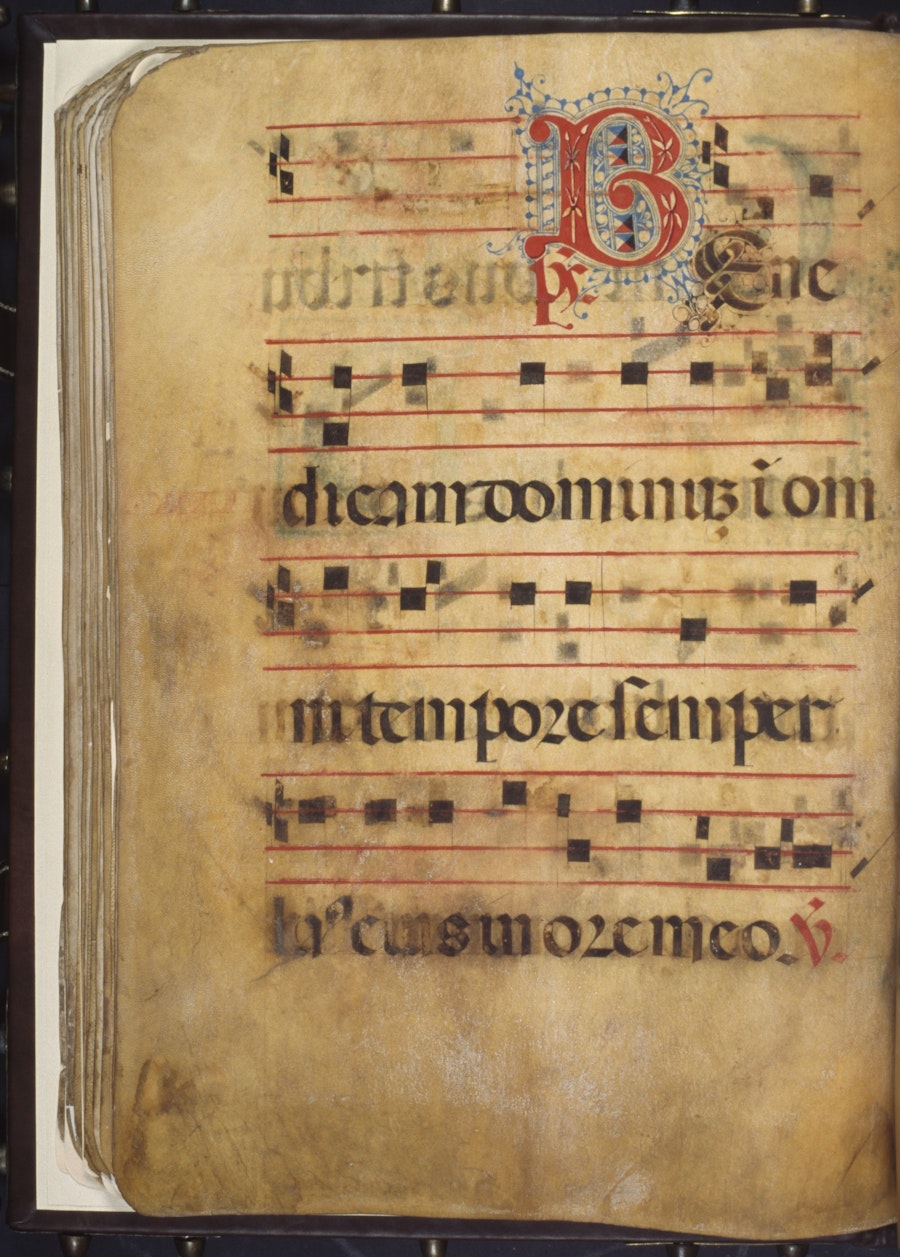 B Ene
dicam dominuꝫ ĩ om
ni tempore semper
eius in ore meo. ℣.